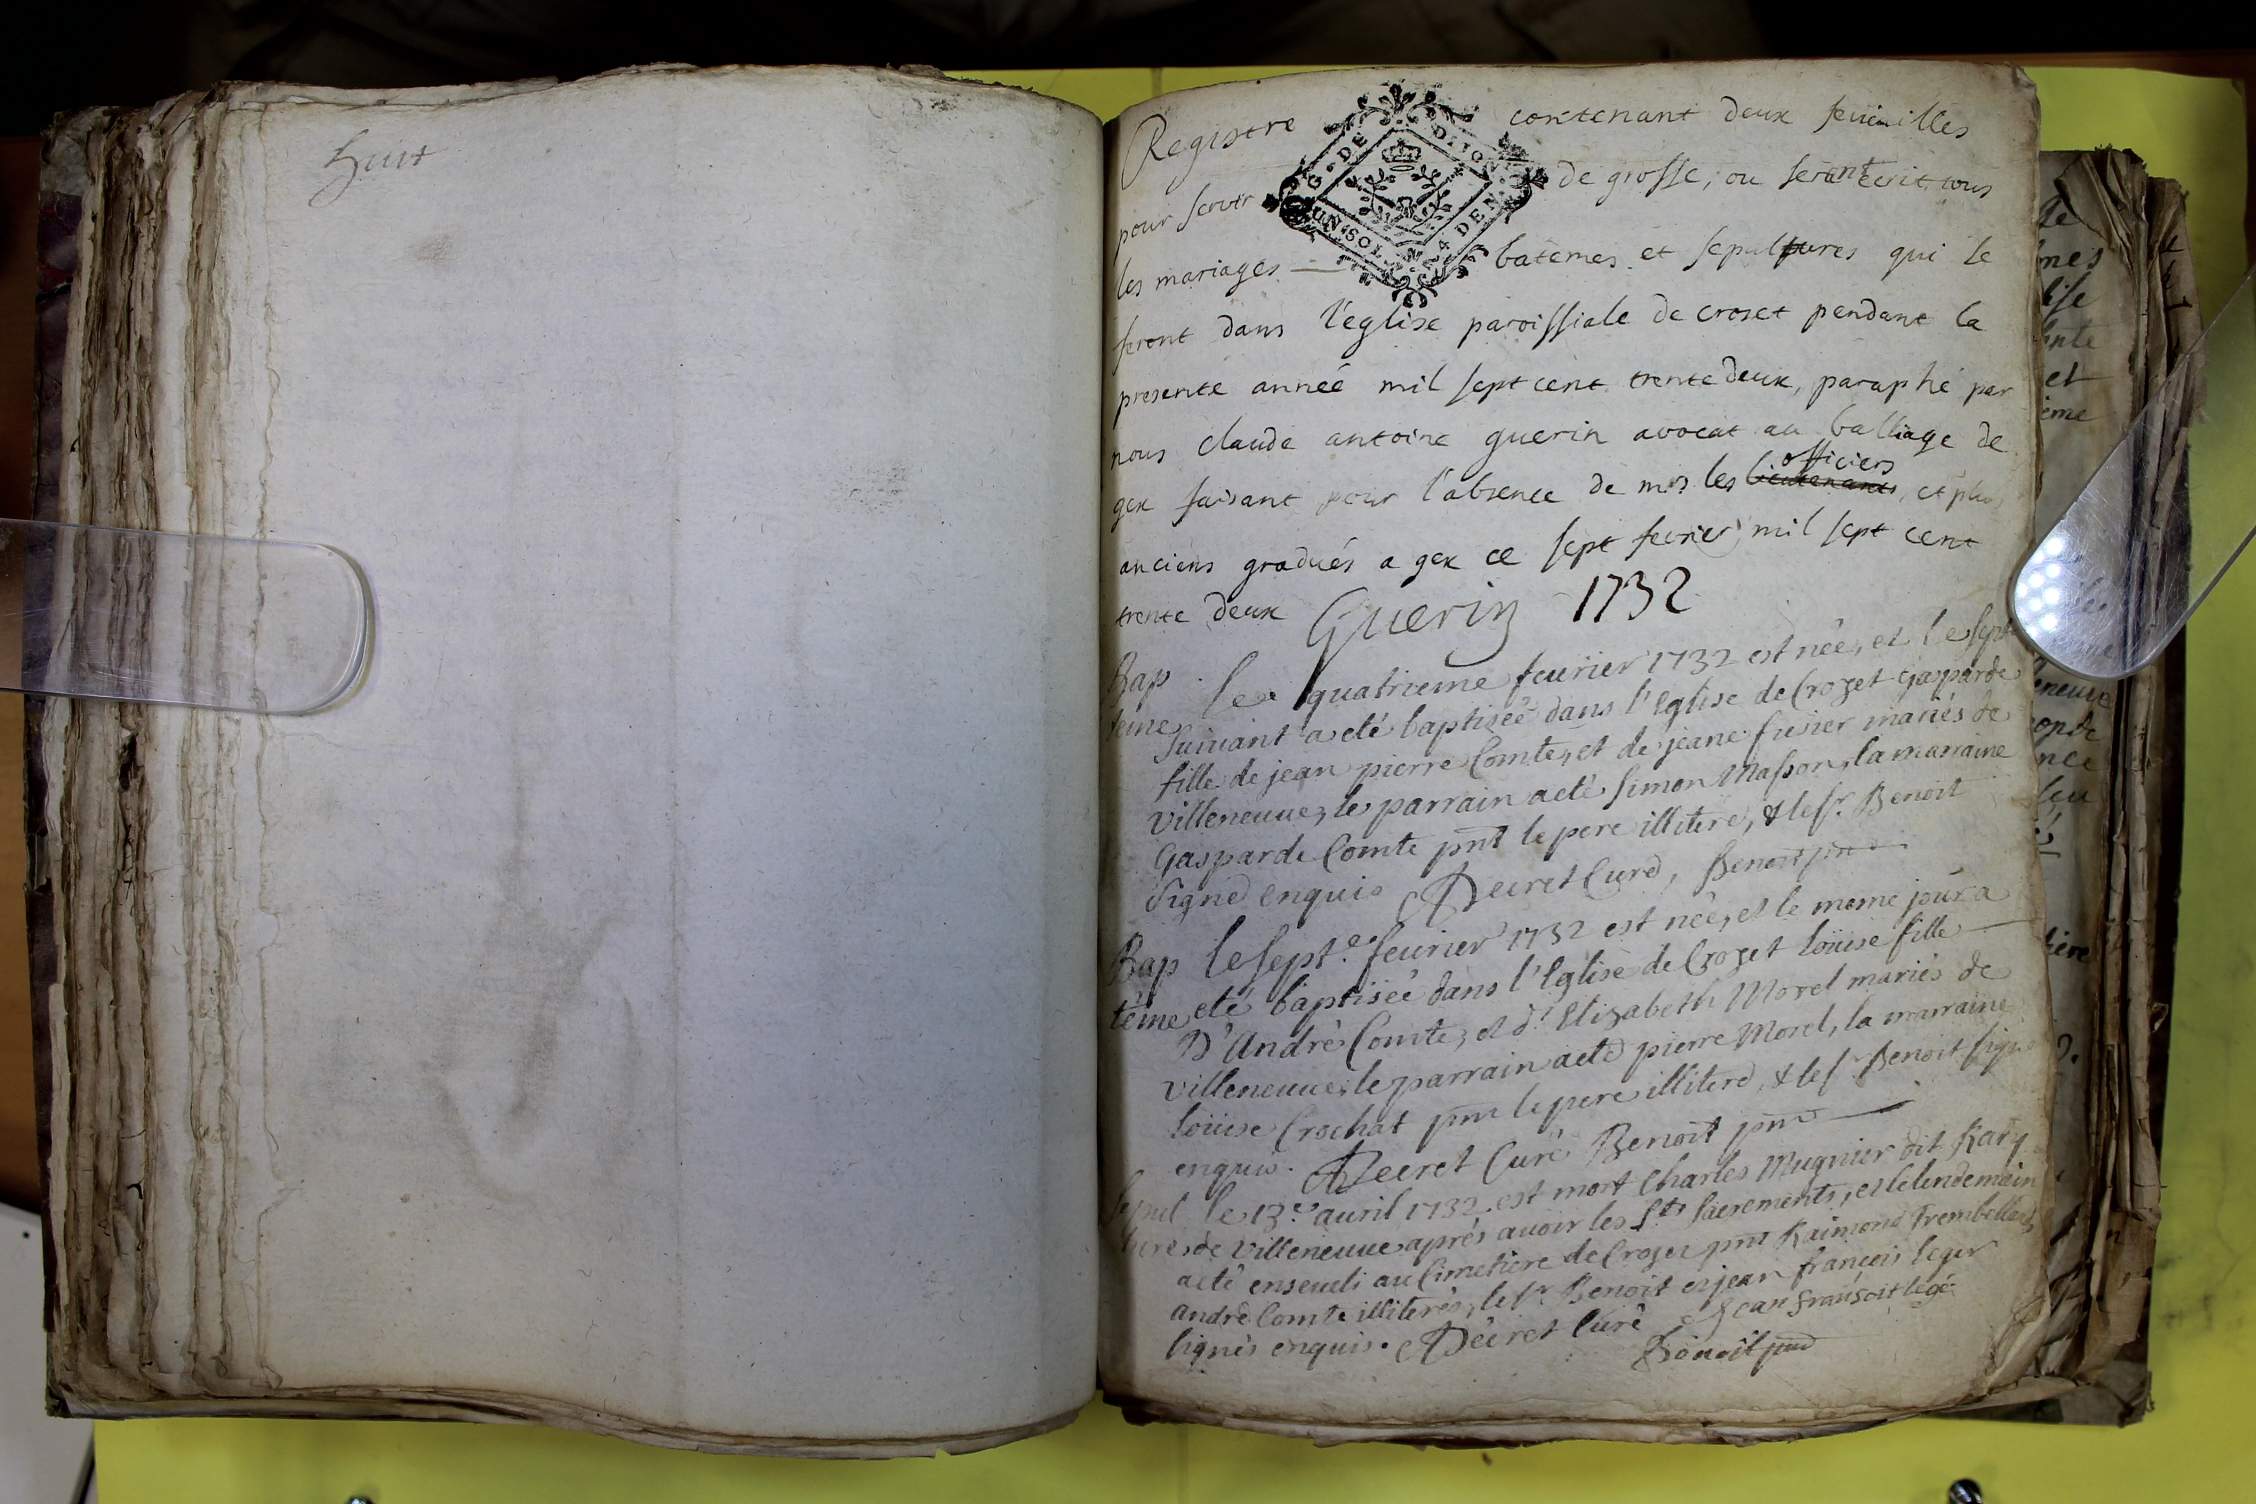 huit
Registre contenant deux feuilles
pour servir de grosse, ou seront ecrit tous
les mariages batemes et sepultures qui se
feront dans l'eglise paroissiale de croset pendant la
presente année mil sept cent trente deux, paraphé par
nous claude antoine guerin avocat au balliage de
officiers
gex faisant pour l'absence de mrs les lieutenants, et plus
anciens gradués a gex ce sept fevrier mil sept cent
trente deux Guerin 1732
G. DE DIJON
UN SOL 4 DEN.
Bap le quatrieme feurier 1732 est née, et le sept
teme suiuant a eté baptiseé dans l'Eglise de Crozet Gasparde
fille de jean pierre Comte, et de jeane fusier mariés de
villeneuue, le parrain a eté simon Masson, la marraine
Gasparde Comte pnt le pere illiteré, & le sr. Benoit
signé enquis Decret Curé, Benoit pnt
Bap le sept.e feurier 1732 est née, et le meme jour a
téme eté baptiseé dans l'Eglise de Crozet Loüise fille
D'André Comte, et d'Elizabeth Morel mariés de
villeneuue, le parrain a eté pierre Morel, la marraine
Loüise Crochat pnt le pere illiteré, & le sr Benoit signé
enquis. Decret Curé Benoit pnt
Sepul le 13.e auril 1732 est mort Charles Mugnier dit Kary
ture de villeneuue aprés auoir les sts sacrements, et le lendemain
a eté enseueli au Cimetiere de Crozet pnt Raimond Trembellard,
andré Comte illiterés, le sr. Benoit et jean françois leger
signés enquis. Decret Curé Jean fransoit legé
Benoit pnt